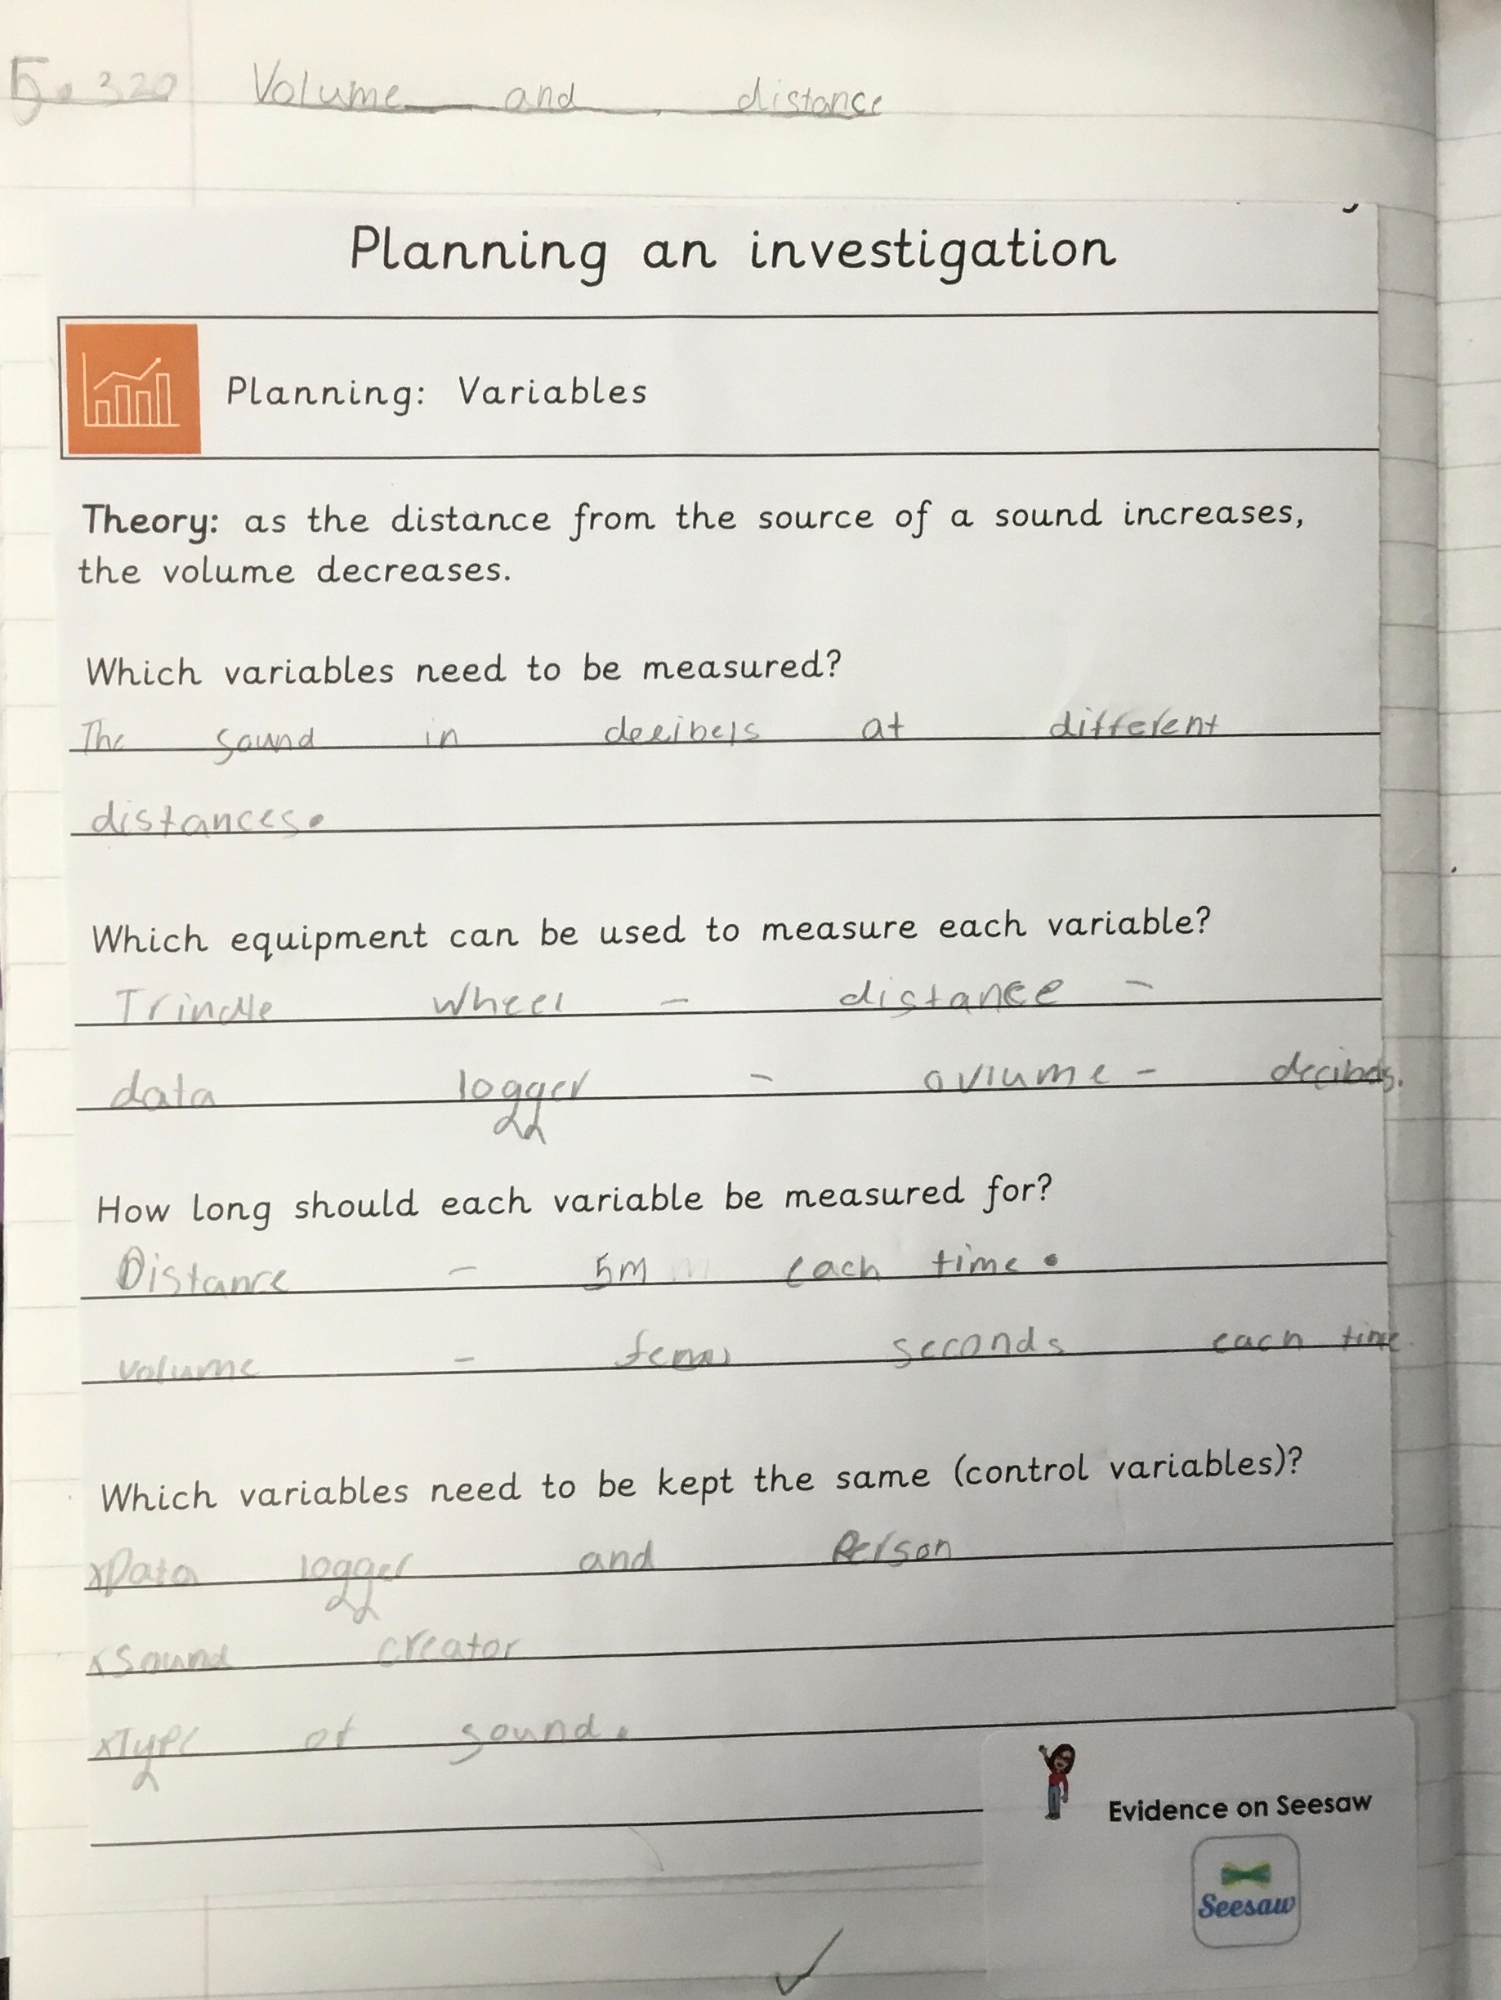 5. 320 Volume and distance
Planning an investigation
Planning: Variables
Theory: as the distance from the source of a sound increases,
the volume decreases.
Which variables need to be measured?
The sound in decibels at different
distances.
Which equipment can be used to measure each variable?
Trindle wheel - distance -
data logger - ovlume - decibels.
How long should each variable be measured for?
Distance - 5m each time.
volume - seconds each time.
Which variables need to be kept the same (control variables)?
xData logger and Person
xSound creator
xType of sound.
Evidence on Seesaw
Seesaw